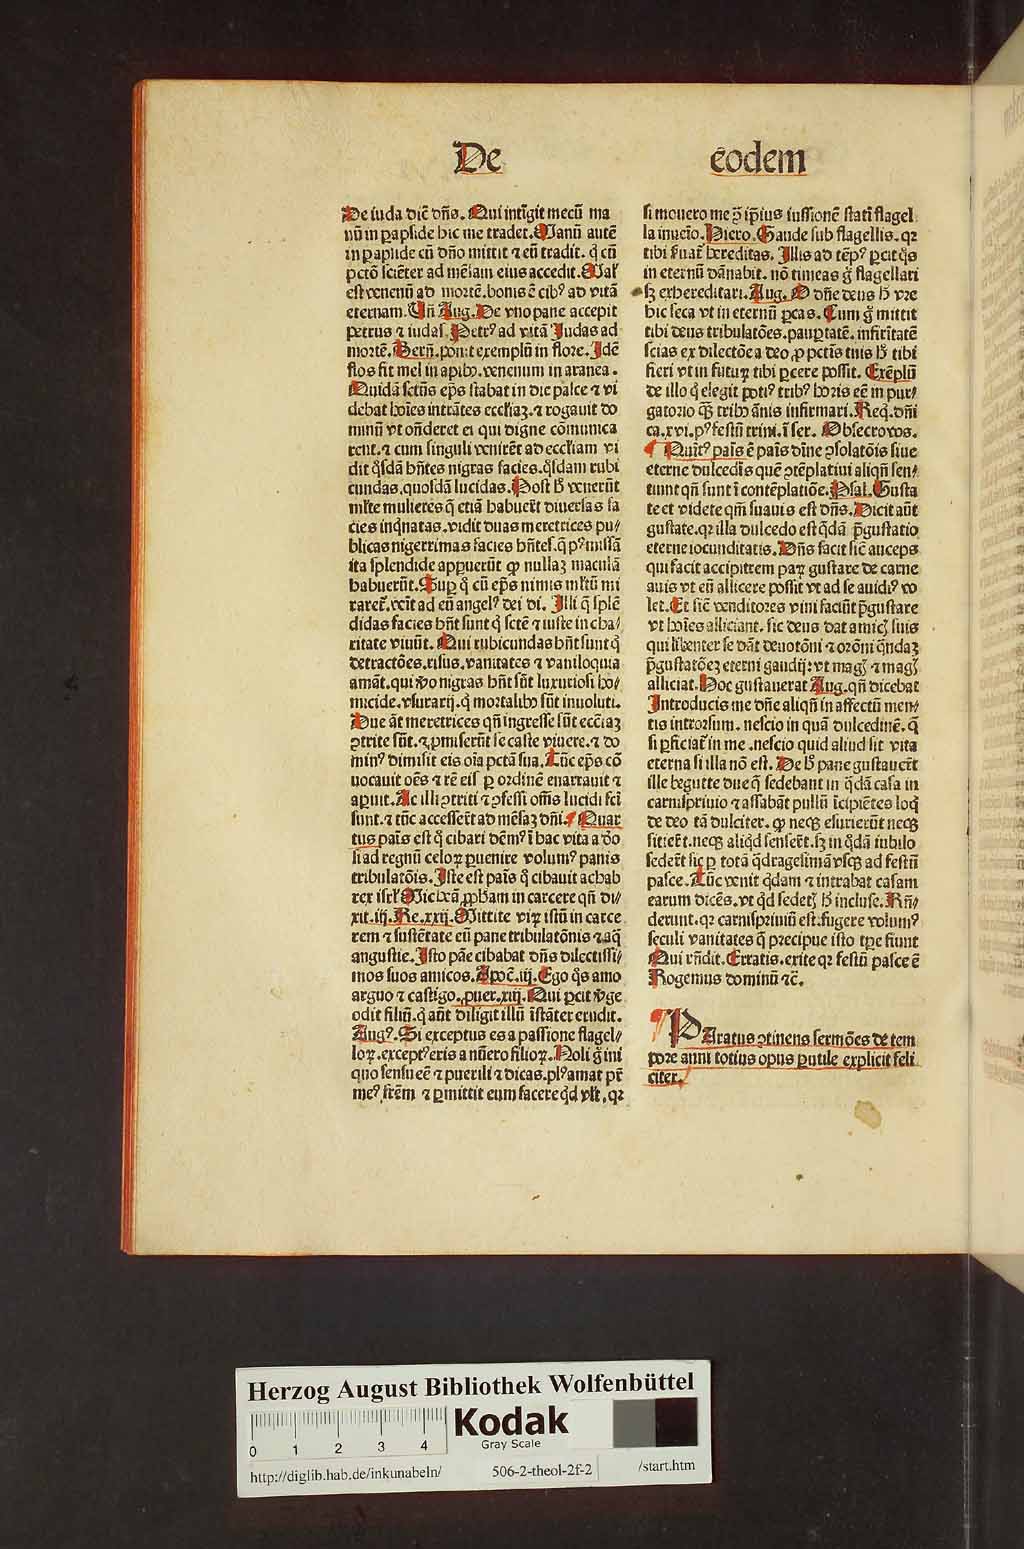 De eodem
De iuda dic̄ dñs. Qui intīgit mecū ma
nū in ꝑapside hic me tradet. Manū autē
in ꝑapside cū dño mittit ⁊ eū tradit. q̇ cū
pctō sciēter ad mēsam eius accedit. Mal᷑
est venenū ad mortē. bonis ē cibꝰ ad vitā
eternam. Vn̄ Aug. De vno pane accepit
petrus ⁊ iudas. Petrꝰ ad vitā Iudas ad
mortē. Bern̄. ponit exemplū in flore. Idē
flos fit mel in apibꝰ. venenum in aranea.
Quidā sctūs ep̄s stabat in die pasce ⁊ vi
debat hoīes intrātes eccliaꝫ. ⁊ rogauit do
minū vt oñderet ei qui digne cōmunica
rent. ⁊ cum singuli venirēt ad eccliam vi
dit q̇sdā hn̄tes nigras facies. q̇sdam rubi
cundas. quosdā lucidas. Post h̄ venerūt
ml̄te mulieres q̄ etiā habuert̄ diuersas fa
cies inq̇natas. vidit duas meretrices pu⸗
blicas nigerrimas facies hn̄tes. q̄ pꝰ missā
ita splendide apꝑuerūt ꝙ nullaꝫ maculā
habuerūt. Suꝑ q̇ cū ep̄s nimis ml̄tū mi
raret᷑. venit ad eū angelꝰ dei di. Illi q̇ splē
didas facies hn̄t sunt q̇ sctē ⁊ iuste in cha⸗
ritate viuūt. Qui rubicundas hn̄t sunt q̇
detractōes. risus. vanitates ⁊ vaniloquia
amāt. qui v̊o nigras hn̄t sūt luxuriosi ho⸗
micide. vsurarij. q̇ mortalibꝰ sūt inuoluti.
Due āt meretrices qn̄ ingresse sūt eccīaꝫ
ꝯtrite sūt. ⁊ ꝓmiserūt se caste viuere. ⁊ do
minꝰ dimisit eis oīa pctā sua. Tūc ep̄s cō
uocauit oēs ⁊ rē eis ꝑ ordinē enarrauit ⁊
aꝑuit. Ac illi ꝯtriti ⁊ ꝯfessi oīns lucidi fcī
sunt. ⁊ tūc accessert̄ ad mēsaꝫ dñi. ¶ Quar
tus panis est q̇ cibari dēmꝰ ī hac vita a dño
si ad regnū celoꝝ ꝑuenire volumꝰ panis
tribulatōis. Iste est panis q̇ cibauit achab
rex isrl᷑ Micheā ꝓphetam in carcere qn̄ di⸗
xit. iij. Re. xxij. Mittite viꝝ istū in carce
rem ⁊ sustētate eū pane tribulatōnis ⁊ aq̄
angustie. Isto pāe cibabat dñs dilectissi⸗
mos suos amicos. Apoc̄. iij. Ego q̇s amo
arguo ⁊ castigo. ꝓuer. xiij. Qui ꝑcit v̊ge
odit filiū. q̇ aūt diligit illū īstāter erudit.
Augꝰ. Si exceptus es a passione flagel⸗
loꝝ. exceptꝰ eris a nūero filioꝝ. Noli g̊ ini
quo sensu eē ⁊ puerili ⁊ dicas. plꝰ amat pr̄
meꝰ frēm ⁊ ꝑmittit eum facere q̇d vlt̄. qꝛ
si mouero me ꝯ̄ ip̄ius iussionē statī flagel
la inuēio. Hiero. Gaude sub flagellis. qꝛ
tibi ẜuat᷑ hereditas. Illis ad tēpꝰ ꝑcit q̇s
in eternū dānabit. nō timeas g̊ flagellari
sꝫ exhereditari. Aug. O dñe deus h̄ vre
hic seca vt in eternū ꝑcas. Cum g̊ mittit
tibi deus tribulatōes. pauꝑtatē. infirītatē
scias ex dilectōe a deo ꝓ pctīs tuis h̄ tibi
fieri vt in futuꝝ tibi ꝑcere possit. Exēplū
de illo q̇ elegit potiꝰ tribꝰ horis eē in pur⸗
gatorio qꝫ̄ tribꝰ ānis infirmari. Req̇. dñi
ca. xvi. pꝰ festū trini. ī ser. Obsecro vos.
¶ Quītꝰ panis ē panis diuīe ꝯsolatōis siue
eterne dulcedīs quē ꝯtēplatiui aliqn̄ sen⸗
tiunt qn̄ sunt ī contēplatiōe. Psal. Gusta
te et videte qm̄ suauis est dñs. Dicit aūt
gustate. qꝛ illa dulcedo est q̇dā p̄gustatio
eterne iocunditatis. Dñs facit sic̄ auceps
qui facit accipitrem paꝝ gustare de carne
auis vt eū allicere possit vt ad se auidiꝰ vo
let. Et sic̄ venditores vini faciūt p̄gustare
vt hoīes alliciant. sic deus dat amicꝭ suis
qui libenter se dāt deuotōni ⁊ orōni q̄ndaꝫ
p̄gustatōeꝫ eterni gaudij: vt magꝭ ⁊ magꝭ
alliciat. Hoc gustauerat Aug. qn̄ dicebat
Introducis me dñe aliqn̄ in affectū men⸗
tis introrsum. nescio in quā dulcedinē. q̄
si ꝑficiat᷑ in me. nescio quid aliud sit vita
eterna si illa nō est. De h̄ pane gustauert̄
ille begutte due q̄ sedebant in q̇dā casa in
carnispriuio ⁊ assabāt pullū īcipiētes loq̇
de deo tā dulciter. ꝙ neqꝫ esurierūt neqꝫ
sitiert̄. neqꝫ aliq̇d sensert̄. sꝫ in q̇dā iubilo
sedert̄ sic ꝑ totā q̇dragesimā vsqꝫ ad festū
pasce. Tūc venit q̇dam ⁊ intrabat casam
earum dicēs. vt q̇d sedetꝭ h̄ incluse. Rn̄⸗
derunt. qꝛ carnispriuiū est. fugere volumꝰ
seculi vanitates q̄ precipue isto tꝑe fiunt
Qui rn̄dit. Erratis. exite qꝛ festū pasce ē
Rogemus dominū ⁊c̄.
¶ PAratus ꝯtinens sermōes de tem
pore anni totius opus ꝑutile explicit feli
citer.
Herzog August Bibliothek Wolfenbüttel
0 1 2 3 4
Kodak
Gray Scale
http://diglib.hab.de/inkunabeln/ 506-2-theol-2f-2 /start.htm